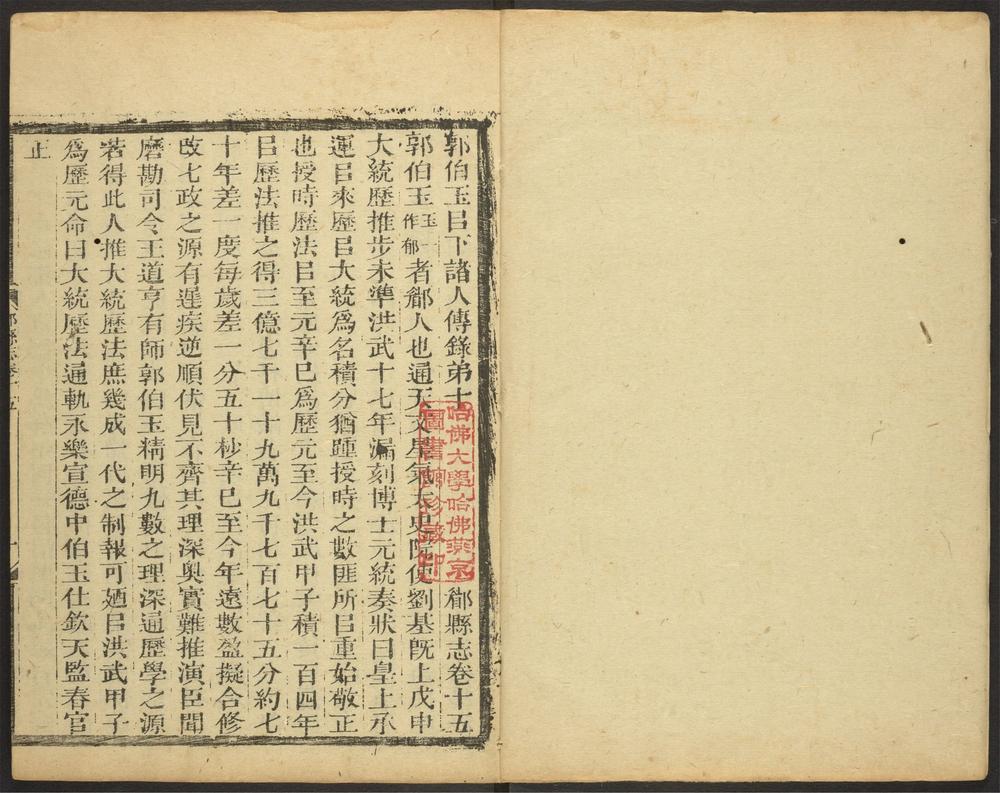 郭伯玉㠯下諸人傳錄弟十 鄠縣志卷十五
郭伯玉玉一作郁者鄠人也通天文星氣太史院使劉基旣上戊申
大統歷推步未準洪武十七年漏刻博士元統奏狀曰皇上承
運㠯來歷㠯大統爲名積分猶踵授時之數匪所㠯重始敬正
也授時歷法㠯至元辛巳爲歷元至今洪武甲子積一百四年
㠯歷法推之得三億七千一十九萬九千七百七十五分約七
十年差一度每歲差一分五十秒辛巳至今年遠數盈擬合修
改七政之源有遲疾逆順伏見不齊其理深奧實難推演臣聞
磨勘司令王道亨有師郭伯玉精明九數之理深通歷學之源
若得此人推大統歷法庶幾成一代之制報可廼㠯洪武甲子
爲歷元命曰大統歷法通軌永樂宣德中伯玉仕欽天監春官
正
哈佛大學哈佛燕京
圖書館珍藏印